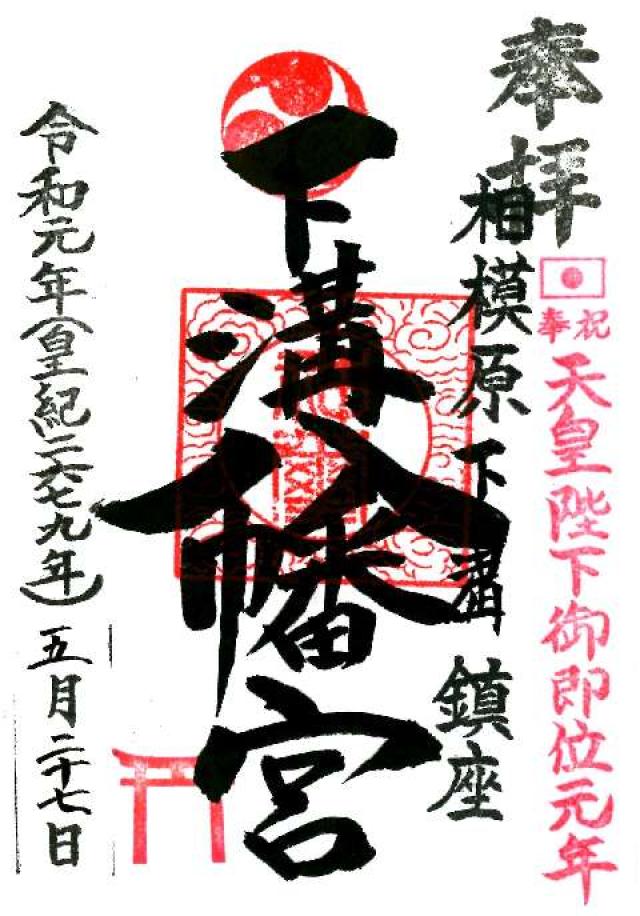 奉拝
奉祝
天皇陛下御即位元年
相模原下溝鎮座
下溝八幡宮
令和元年(皇紀二六七九年)五月二十七日